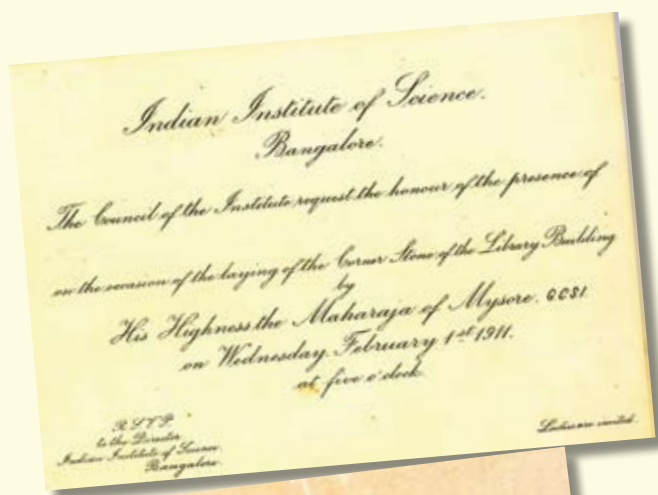 Indian Institute of Science.
Bangalore.
The Council of the Institute request the honour of the presence of
on the occasion of the laying of the Corner Stone of the Library Building
by
His Highness the Maharaja of Mysore. GCSI.
on Wednesday February 1st 1911.
at five o'clock.
R.S.V.P.
to the Director
Indian Institute of Science
Bangalore.
Ladies are invited.